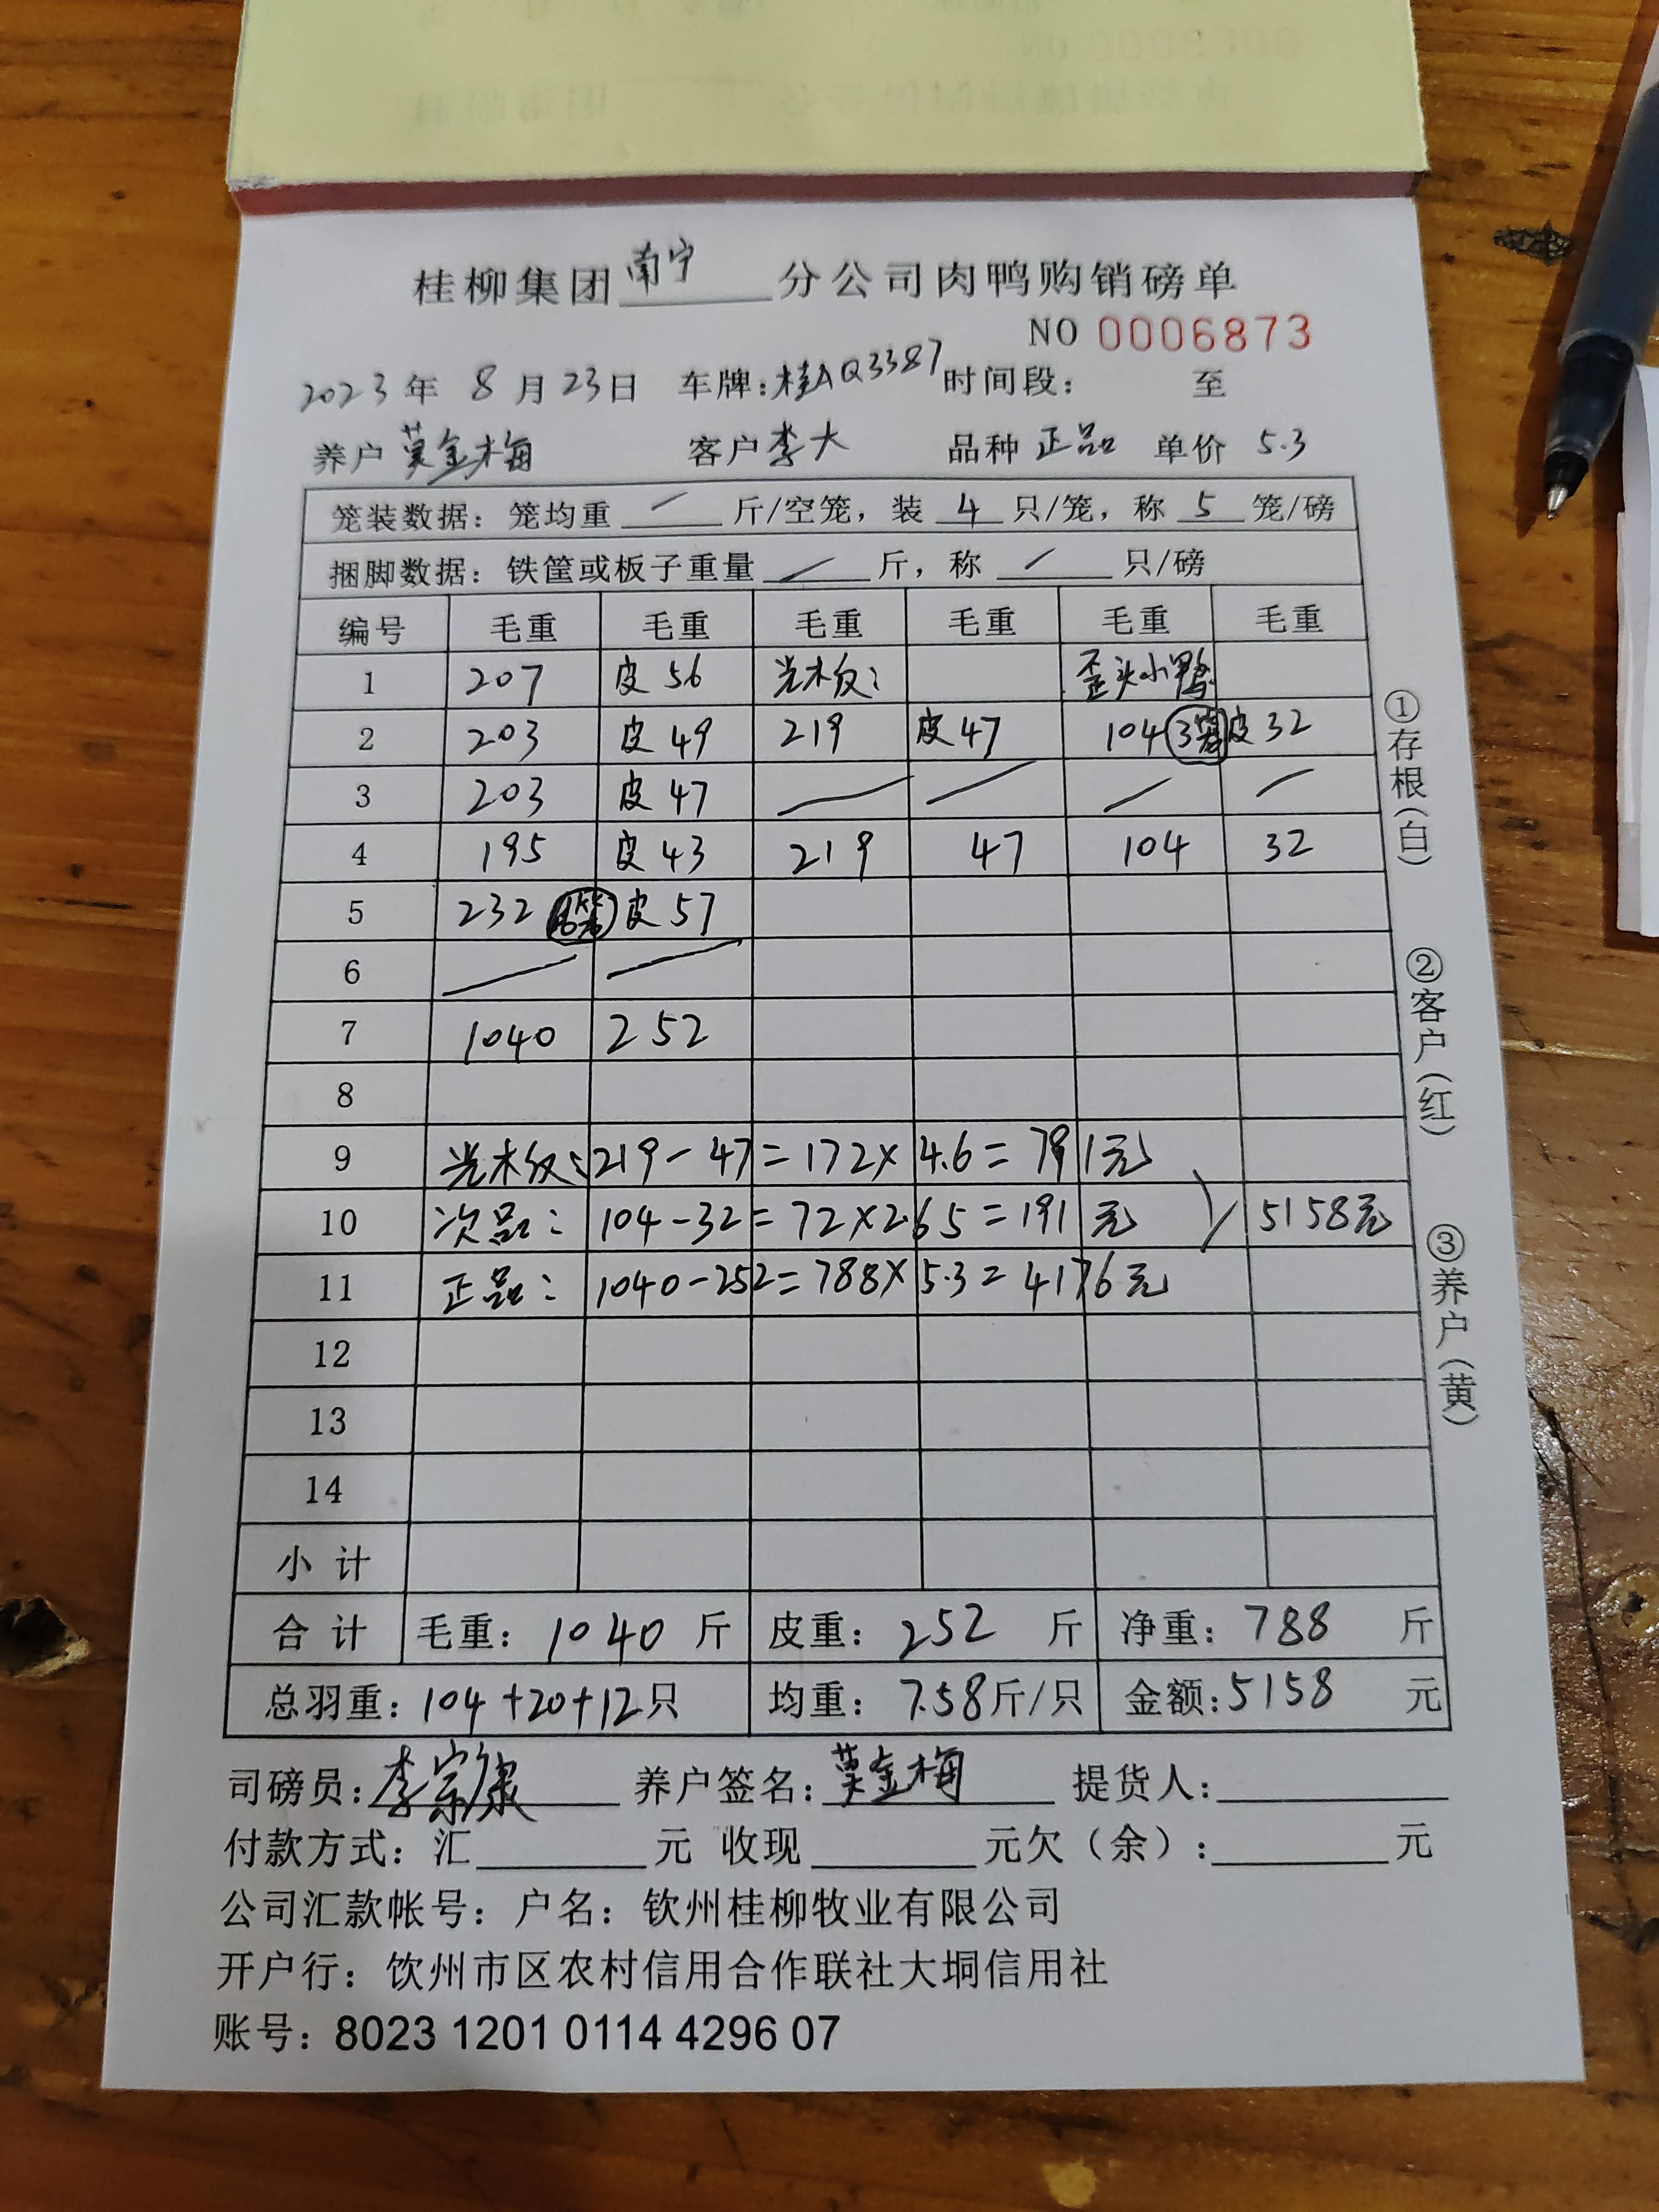 桂柳集团南宁分公司肉鸭购销磅单
NO 0006873
2023年 8月23日 车牌:桂AQ3387 时间段: 至
养户 莫金梅 客户 李大 品种 正品 单价 5.3
笼装数据: 笼均重 / 斤/空笼, 装 4 只/笼, 称 5 笼/磅
捆脚数据: 铁筐或板子重量 / 斤, 称 / 只/磅
编号 毛重 毛重 毛重 毛重 毛重 毛重
1 207 皮56 光木级: 歪头小鸭
2 203 皮49 219 皮47 104 皮32
3 203 皮47 / / / /
4 195 皮43 219 47 104 32
5 232 皮57
6 / /
7 1040 252
8
9 光木级: 219-47=172×4.6=791元
10 次品: 104-32=72×2.65=191元 5158元
11 正品: 1040-252=788×5.3=4176元
12
13
14
小计
合计 毛重: 1040 斤 皮重: 252 斤 净重: 788 斤
总羽重: 104+20+12只 均重: 7.58斤/只 金额: 5158 元
司磅员: 李宗康 养户签名: 莫金梅 提货人:
付款方式: 汇 元 收现 元欠(余): 元
公司汇款帐号: 户名: 钦州桂柳牧业有限公司
开户行: 饮州市区农村信用合作联社大垌信用社
账号: 8023 1201 0114 4296 07
①存根(白)
②客户(红)
③养户(黄)